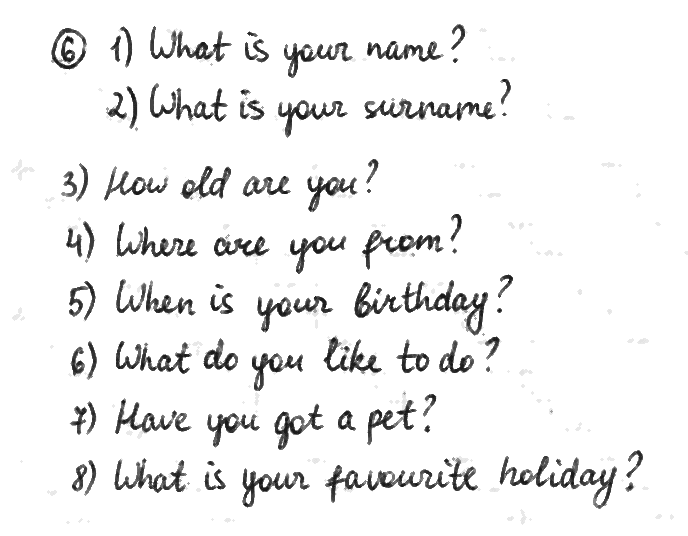 6 1) What is your name?
2) What is your surname?
3) How old are you?
4) Where are you from?
5) When is your birthday?
6) What do you like to do?
7) Have you got a pet?
8) What is your favourite holiday?